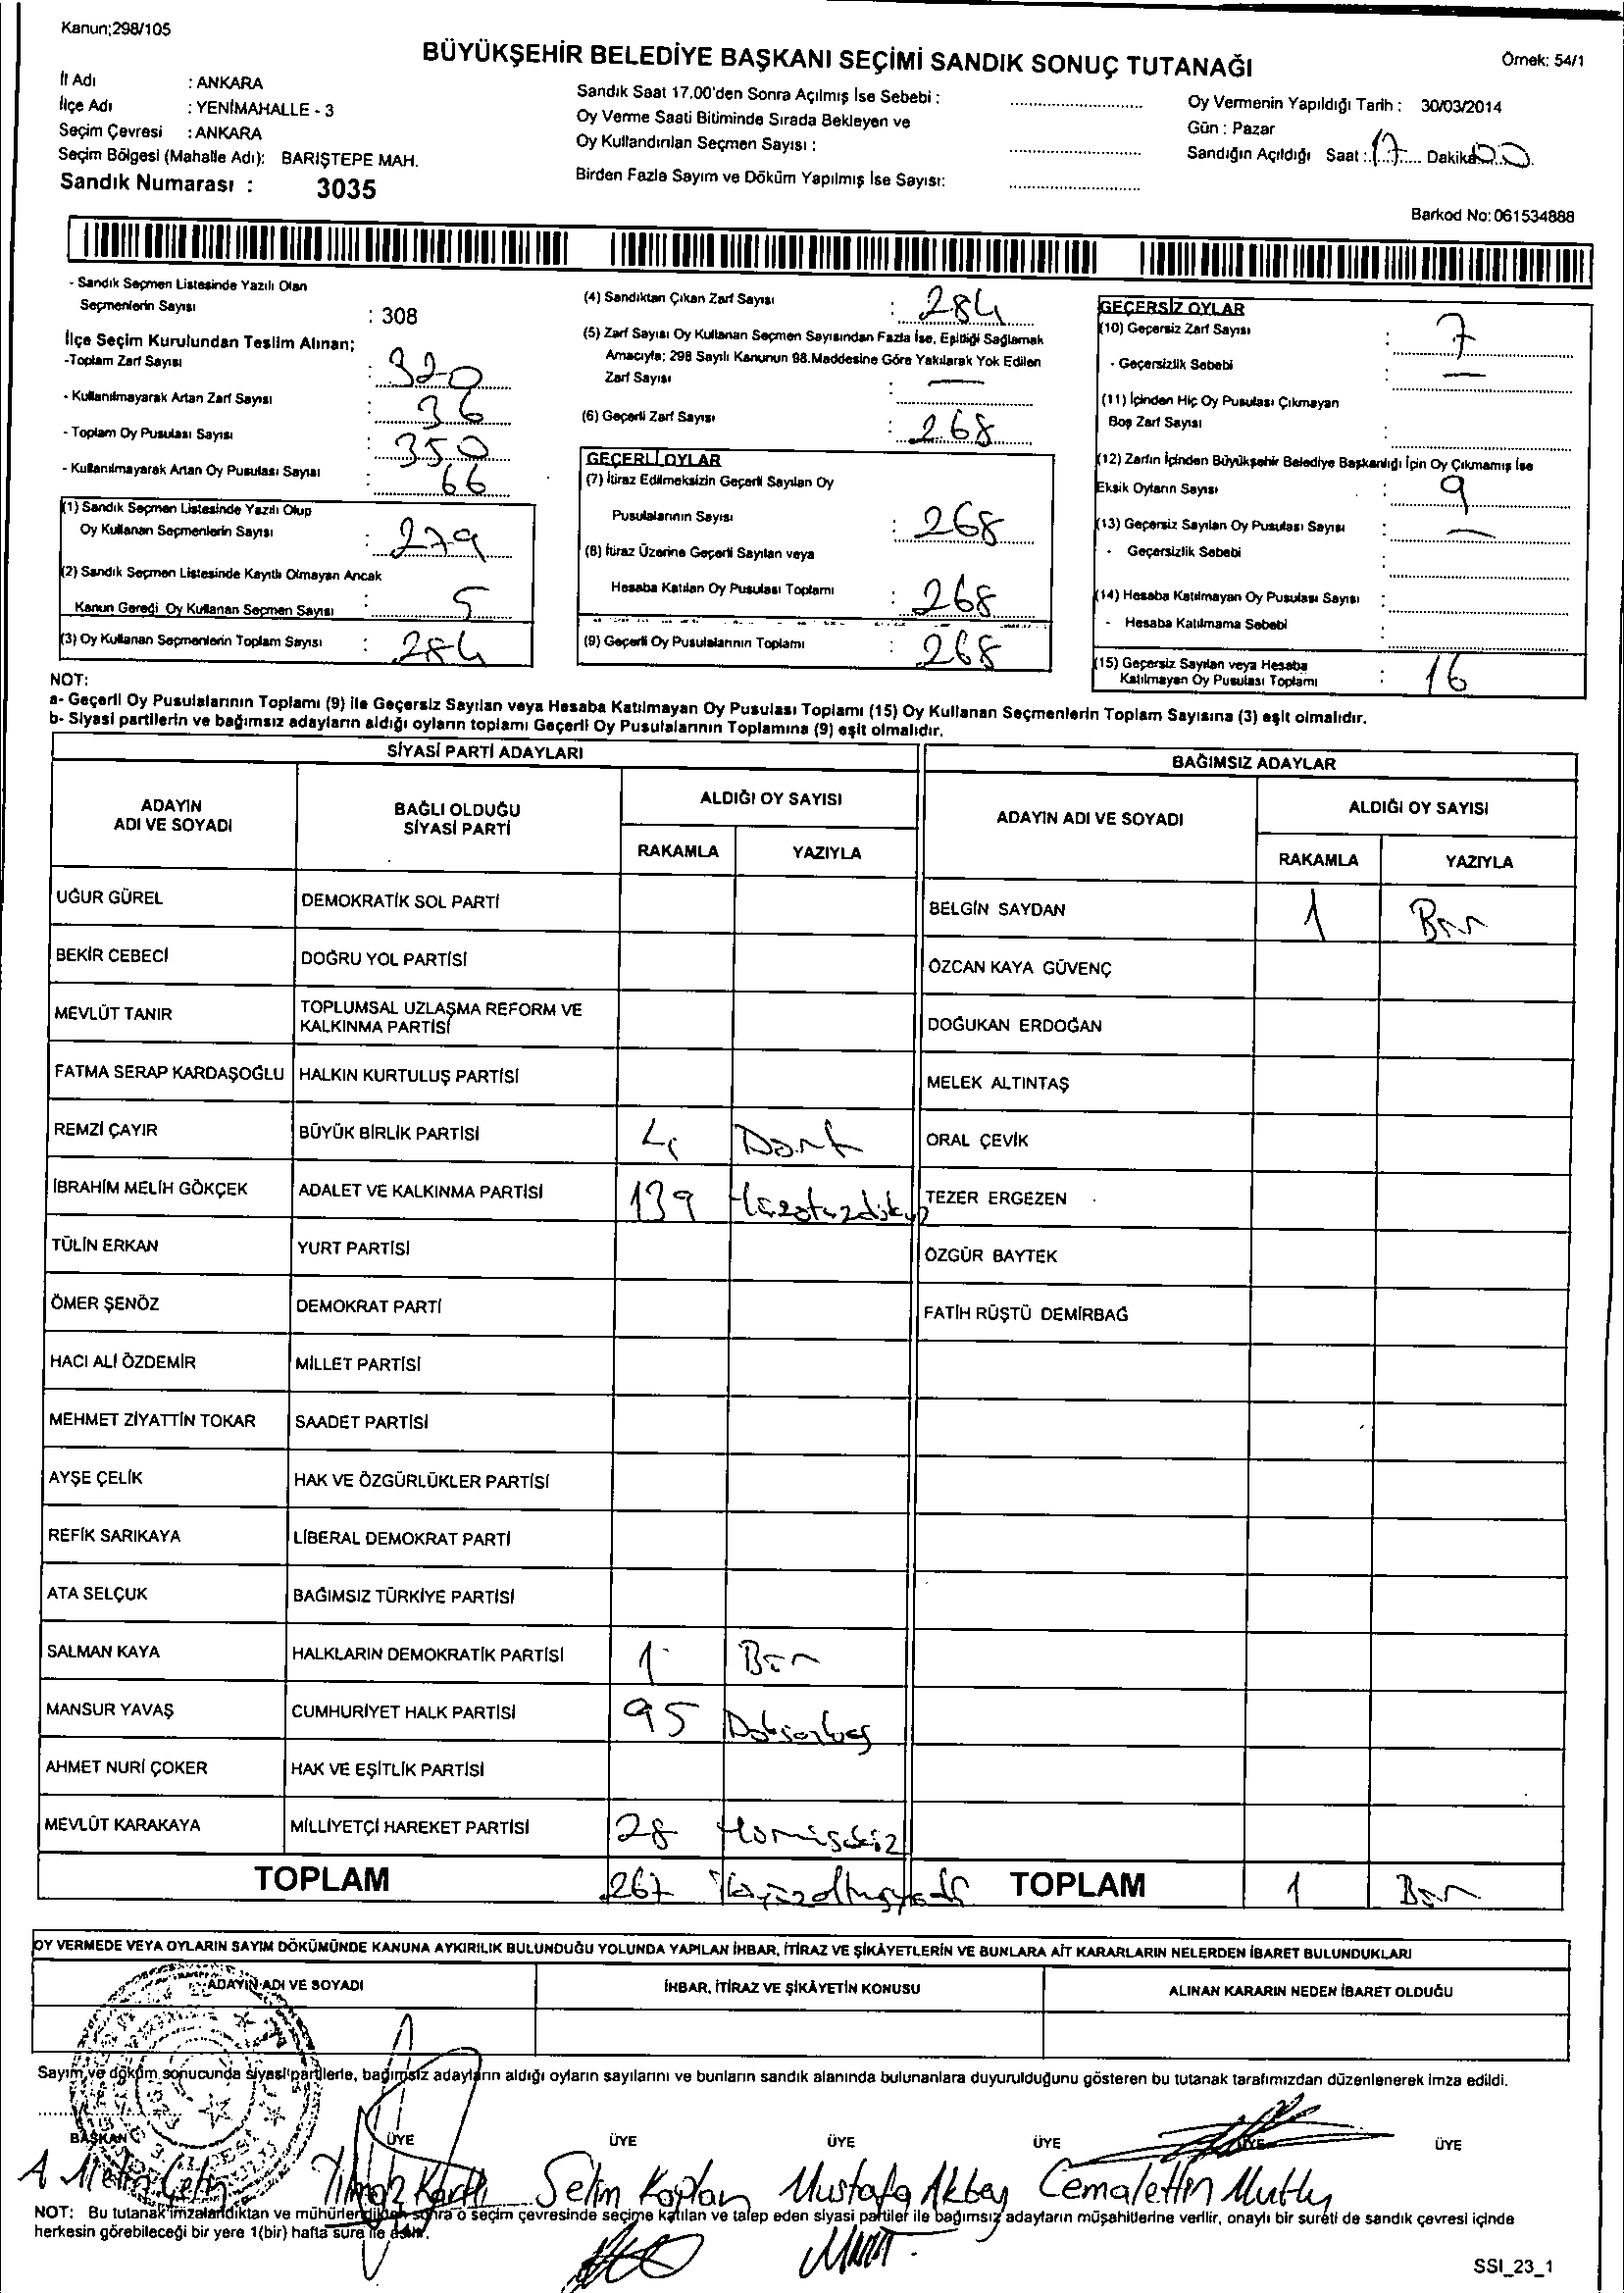 Kanun;298/105
BÜYÜKŞEHİR BELEDİYE BAŞKANI SEÇİMİ SANDIK SONUÇ TUTANAĞI
Örnek: 54/1
İl Adı : ANKARA
İlçe Adı : YENİMAHALLE - 3
Seçim Çevresi : ANKARA
Seçim Bölgesi (Mahalle Adı): BARIŞTEPE MAH.
Sandık Numarası : 3035
Sandık Saat 17.00'den Sonra Açılmış İse Sebebi :
Oy Verme Saati Bitiminde Sırada Bekleyen ve
Oy Kullandırılan Seçmen Sayısı :
Birden Fazla Sayım ve Döküm Yapılmış İse Sayısı:
Oy Vermenin Yapıldığı Tarih : 30/03/2014
Gün : Pazar
Sandığın Açıldığı Saat : 17 Dakika 00
Barkod No: 061534888
- Sandık Seçmen Listesinde Yazılı Olan
Seçmenlerin Sayısı : 308
İlçe Seçim Kurulundan Teslim Alınan;
-Toplam Zarf Sayısı : 320
- Kullanılmayarak Artan Zarf Sayısı : 36
- Toplam Oy Pusulası Sayısı : 350
- Kullanılmayarak Artan Oy Pusulası Sayısı : 66
(1) Sandık Seçmen Listesinde Yazılı Olup
Oy Kullanan Seçmenlerin Sayısı : 279
(2) Sandık Seçmen Listesinde Kayıtlı Olmayan Ancak
Kanun Gereği Oy Kullanan Seçmen Sayısı : 5
(3) Oy Kullanan Seçmenlerin Toplam Sayısı : 284
(4) Sandıktan Çıkan Zarf Sayısı : 284
(5) Zarf Sayısı Oy Kullanan Seçmen Sayısından Fazla İse, Eşitliği Sağlamak
Amacıyla; 298 Sayılı Kanunun 98.Maddesine Göre Yakılarak Yok Edilen
Zarf Sayısı : —
(6) Geçerli Zarf Sayısı : 268
GEÇERLİ OYLAR
(7) İtiraz Edilmeksizin Geçerli Sayılan Oy
Pusulalarının Sayısı : 268
(8) İtiraz Üzerine Geçerli Sayılan veya
Hesaba Katılan Oy Pusulası Toplamı : 268
(9) Geçerli Oy Pusulalarının Toplamı : 268
GEÇERSİZ OYLAR
(10) Geçersiz Zarf Sayısı : 7
- Geçersizlik Sebebi : —
(11) İçinden Hiç Oy Pusulası Çıkmayan
Boş Zarf Sayısı :
(12) Zarfın İçinden Büyükşehir Belediye Başkanlığı İçin Oy Çıkmamış İse
Eksik Oyların Sayısı : 9
(13) Geçersiz Sayılan Oy Pusulası Sayısı : —
- Geçersizlik Sebebi :
(14) Hesaba Katılmayan Oy Pusulası Sayısı :
- Hesaba Katılmama Sebebi :
(15) Geçersiz Sayılan veya Hesaba
Katılmayan Oy Pusulası Toplamı : 16
NOT:
a- Geçerli Oy Pusulalarının Toplamı (9) ile Geçersiz Sayılan veya Hesaba Katılmayan Oy Pusulası Toplamı (15) Oy Kullanan Seçmenlerin Toplam Sayısına (3) eşit olmalıdır.
b- Siyasi partilerin ve bağımsız adayların aldığı oyların toplamı Geçerli Oy Pusulalarının Toplamına (9) eşit olmalıdır.
SİYASİ PARTİ ADAYLARI
BAĞIMSIZ ADAYLAR
ADAYIN ADI VE SOYADI
BAĞLI OLDUĞU SİYASİ PARTİ
ALDIĞI OY SAYISI
RAKAMLA YAZIYLA
ADAYIN ADI VE SOYADI
ALDIĞI OY SAYISI
RAKAMLA YAZIYLA
UĞUR GÜREL DEMOKRATİK SOL PARTİ BELGİN SAYDAN 1 Bir
BEKİR CEBECİ DOĞRU YOL PARTİSİ ÖZCAN KAYA GÜVENÇ
MEVLÜT TANIR TOPLUMSAL UZLAŞMA REFORM VE KALKINMA PARTİSİ DOĞUKAN ERDOĞAN
FATMA SERAP KARDAŞOĞLU HALKIN KURTULUŞ PARTİSİ MELEK ALTINTAŞ
REMZİ ÇAYIR BÜYÜK BİRLİK PARTİSİ 4 Dört ORAL ÇEVİK
İBRAHİM MELİH GÖKÇEK ADALET VE KALKINMA PARTİSİ 139 TEZER ERGEZEN
TÜLİN ERKAN YURT PARTİSİ ÖZGÜR BAYTEK
ÖMER ŞENÖZ DEMOKRAT PARTİ FATİH RÜŞTÜ DEMİRBAĞ
HACI ALİ ÖZDEMİR MİLLET PARTİSİ
MEHMET ZİYATTİN TOKAR SAADET PARTİSİ
AYŞE ÇELİK HAK VE ÖZGÜRLÜKLER PARTİSİ
REFİK SARIKAYA LİBERAL DEMOKRAT PARTİ
ATA SELÇUK BAĞIMSIZ TÜRKİYE PARTİSİ
SALMAN KAYA HALKLARIN DEMOKRATİK PARTİSİ 1 Bir
MANSUR YAVAŞ CUMHURİYET HALK PARTİSİ 95 Doksanbeş
AHMET NURİ ÇOKER HAK VE EŞİTLİK PARTİSİ
MEVLÜT KARAKAYA MİLLİYETÇİ HAREKET PARTİSİ 28
TOPLAM 267 TOPLAM 1 Bir
OY VERMEDE VEYA OYLARIN SAYIM DÖKÜMÜNDE KANUNA AYKIRILIK BULUNDUĞU YOLUNDA YAPILAN İHBAR, İTİRAZ VE ŞİKÂYETLERİN VE BUNLARA AİT KARARLARIN NELERDEN İBARET BULUNDUKLARI
ADAYIN ADI VE SOYADI İHBAR, İTİRAZ VE ŞİKÂYETİN KONUSU ALINAN KARARIN NEDEN İBARET OLDUĞU
Sayım ve döküm sonucunda siyasi partilerle, bağımsız adayların aldığı oyların sayılarını ve bunların sandık alanında bulunanlara duyurulduğunu gösteren bu tutanak tarafımızdan düzenlenerek imza edildi.
BAŞKAN ÜYE ÜYE ÜYE ÜYE ÜYE ÜYE
A Metin Çetin Selim Kaplan Mustafa Akbaş Cemalettin Mutlu
NOT: Bu tutanak imzalandıktan ve mühürlendikten sonra o seçim çevresinde seçime katılan ve talep eden siyasi partiler ile bağımsız adayların müşahitlerine verilir, onaylı bir sureti de sandık çevresi içinde
herkesin görebileceği bir yere 1(bir) hafta süre ile asılır.
SSI_23_1